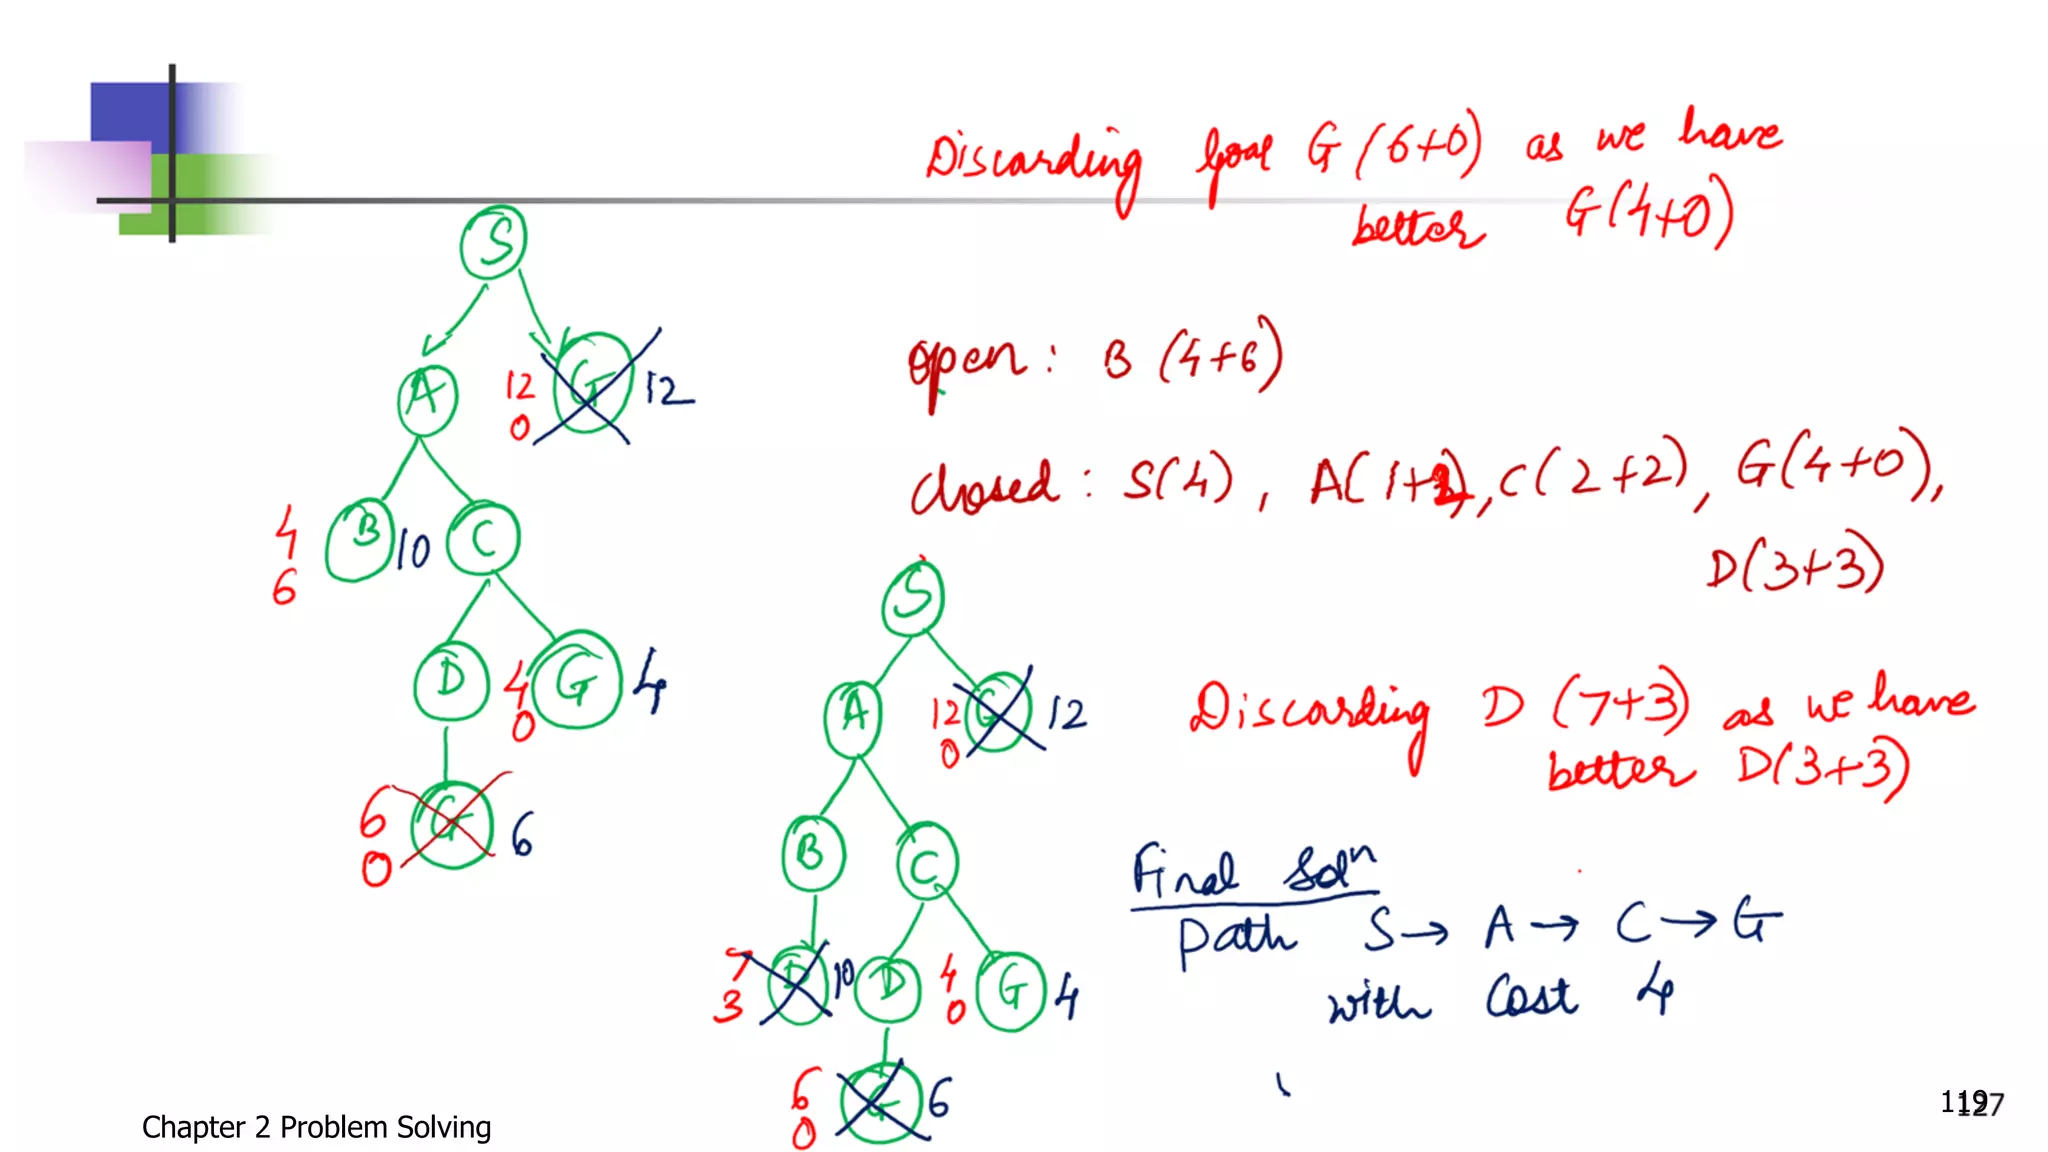 Discarding Goal G (6+0) as we have
better G(4+0)
S
A
12
0
G
12
open : B (4+6)
closed : S(4) , A(1+ , C(2+2) , G(4+0),
D(3+3)
4
6
B
10
C
D
4
0
G
4
6
0
G
6
S
A
12
0
G
12
Discarding D (7+3) as we have
better D(3+3)
B
C
Final Solⁿ
Path S→ A→ C→G
with Cost 4
7
3
D
10
D
4
0
G
4
6
0
G
6
Chapter 2 Problem Solving
127